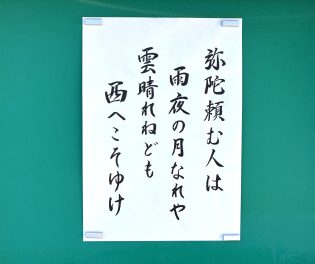 弥陀頼む人は
雨夜の月なれや
雲晴れねども
西へこそゆけ